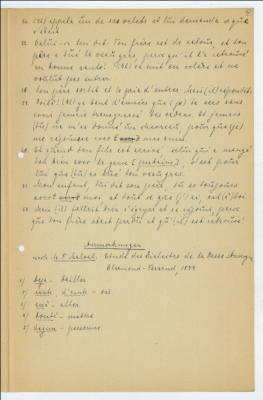 26. (Il) appela un de ses valets et lui demanda ce que
c'était.
27. Celui-ci lui dit: Ton frère est de retour, et ton
père a tué le veau gras, parce qu'il l'a retrouvé
en bonne santé.
28. (Il) se mit en colère et ne
voulut pas entrer.
Son père sortit et le pria d'entrer. Mais (il) répondit:
29. Voilà! (Il) y a tant d'années que (je) te sers sans
avoir jamais transgressé tes ordres. Et jamais
(tu) ne m'as donné un chevreau pour que (je)
me réjouisse avec mes amis.
30. Et quand ton fils est arrivé, celui qui a mangé
ton bien avec le gens [putains], c'est pour
lui que (tu) as tué ton veau gras.
31. Mon enfant, lui dit son père, tu es toujours
avec moi et tout ce que (j')ai, est (à) toi.
32. Mais (il) fallait bien s'égayer et se réjouir, parce
que ton frère était perdu et qu' (il) est retrouvé!
Anmerkungen
nach Études des Dialectes de la Basse Auvergne
Clermont-Ferrand, 1877
1) - bailler
2)
3) - aller
4) - mettre
5) - personne